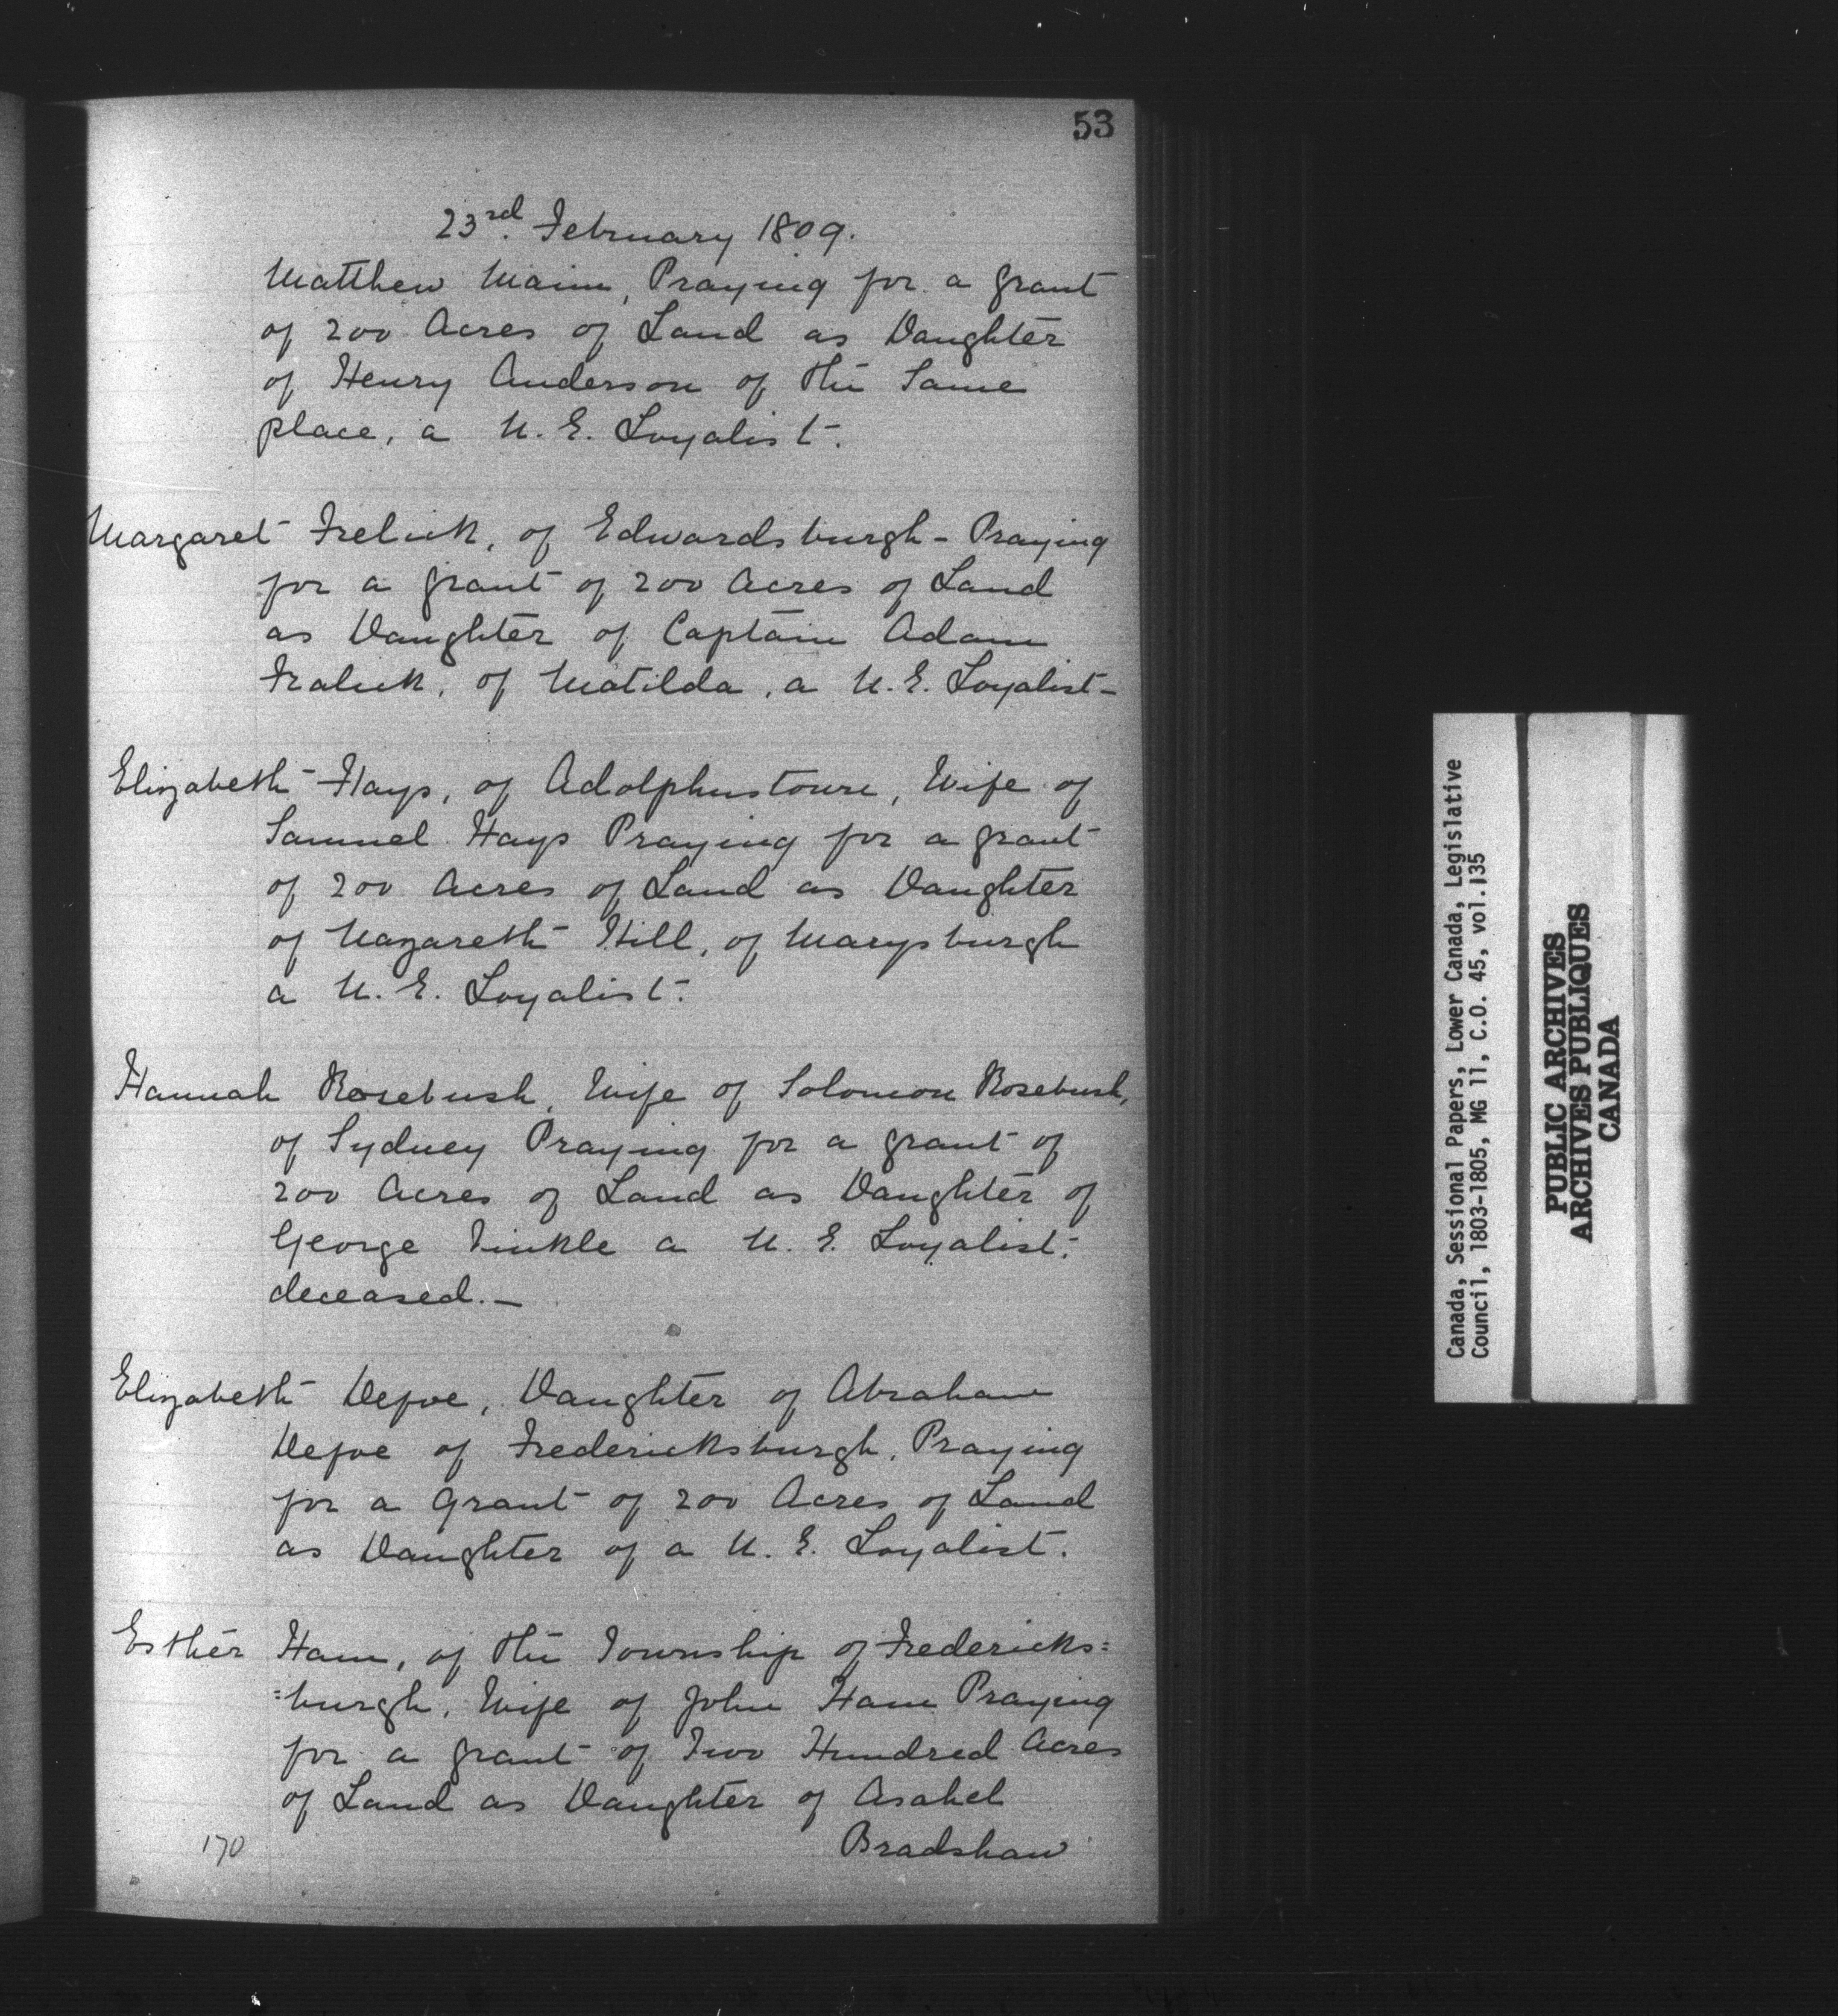 53
23rd. February 1809.
Matthew Main, Praying for a grant
of 200 Acres of Land as Daughter
of Henry Anderson of the Same
place, a U. E. Loyalist.
Margaret Frelick, of Edwardsburgh - Praying
for a grant of 200 Acres of Land
as Daughter of Captain Adam
Fralick, of Matilda, a U. E. Loyalist -
Elizabeth Hays, of Adolphustown, Wife of
Samuel Hays Praying for a grant
of 200 Acres of Land as Daughter
of Nazareth Hill, of Marysburgh
a U. E. Loyalist.
Hannah Rosebush, Wife of Solomon Rosebush,
of Sydney Praying for a grant of
200 Acres of Land as Daughter of
George Finkle a U. E. Loyalist.
deceased. -
Elizabeth Defoe, Daughter of Abraham
Defoe of Fredericksburgh, Praying
for a Grant of 200 Acres of Land
as Daughter of a U. E. Loyalist.
Esther Ham, of the Township of Fredericks=
=burgh, Wife of John Ham Praying
for a grant of Two Hundred Acres
of Land as Daughter of Asahel
Bradshaw
170
Canada, Sessional Papers, Lower Canada, Legislative
Council, 1803-1805, MG 11, C.O. 45, vol.135
PUBLIC ARCHIVES
ARCHIVES PUBLIQUES
CANADA